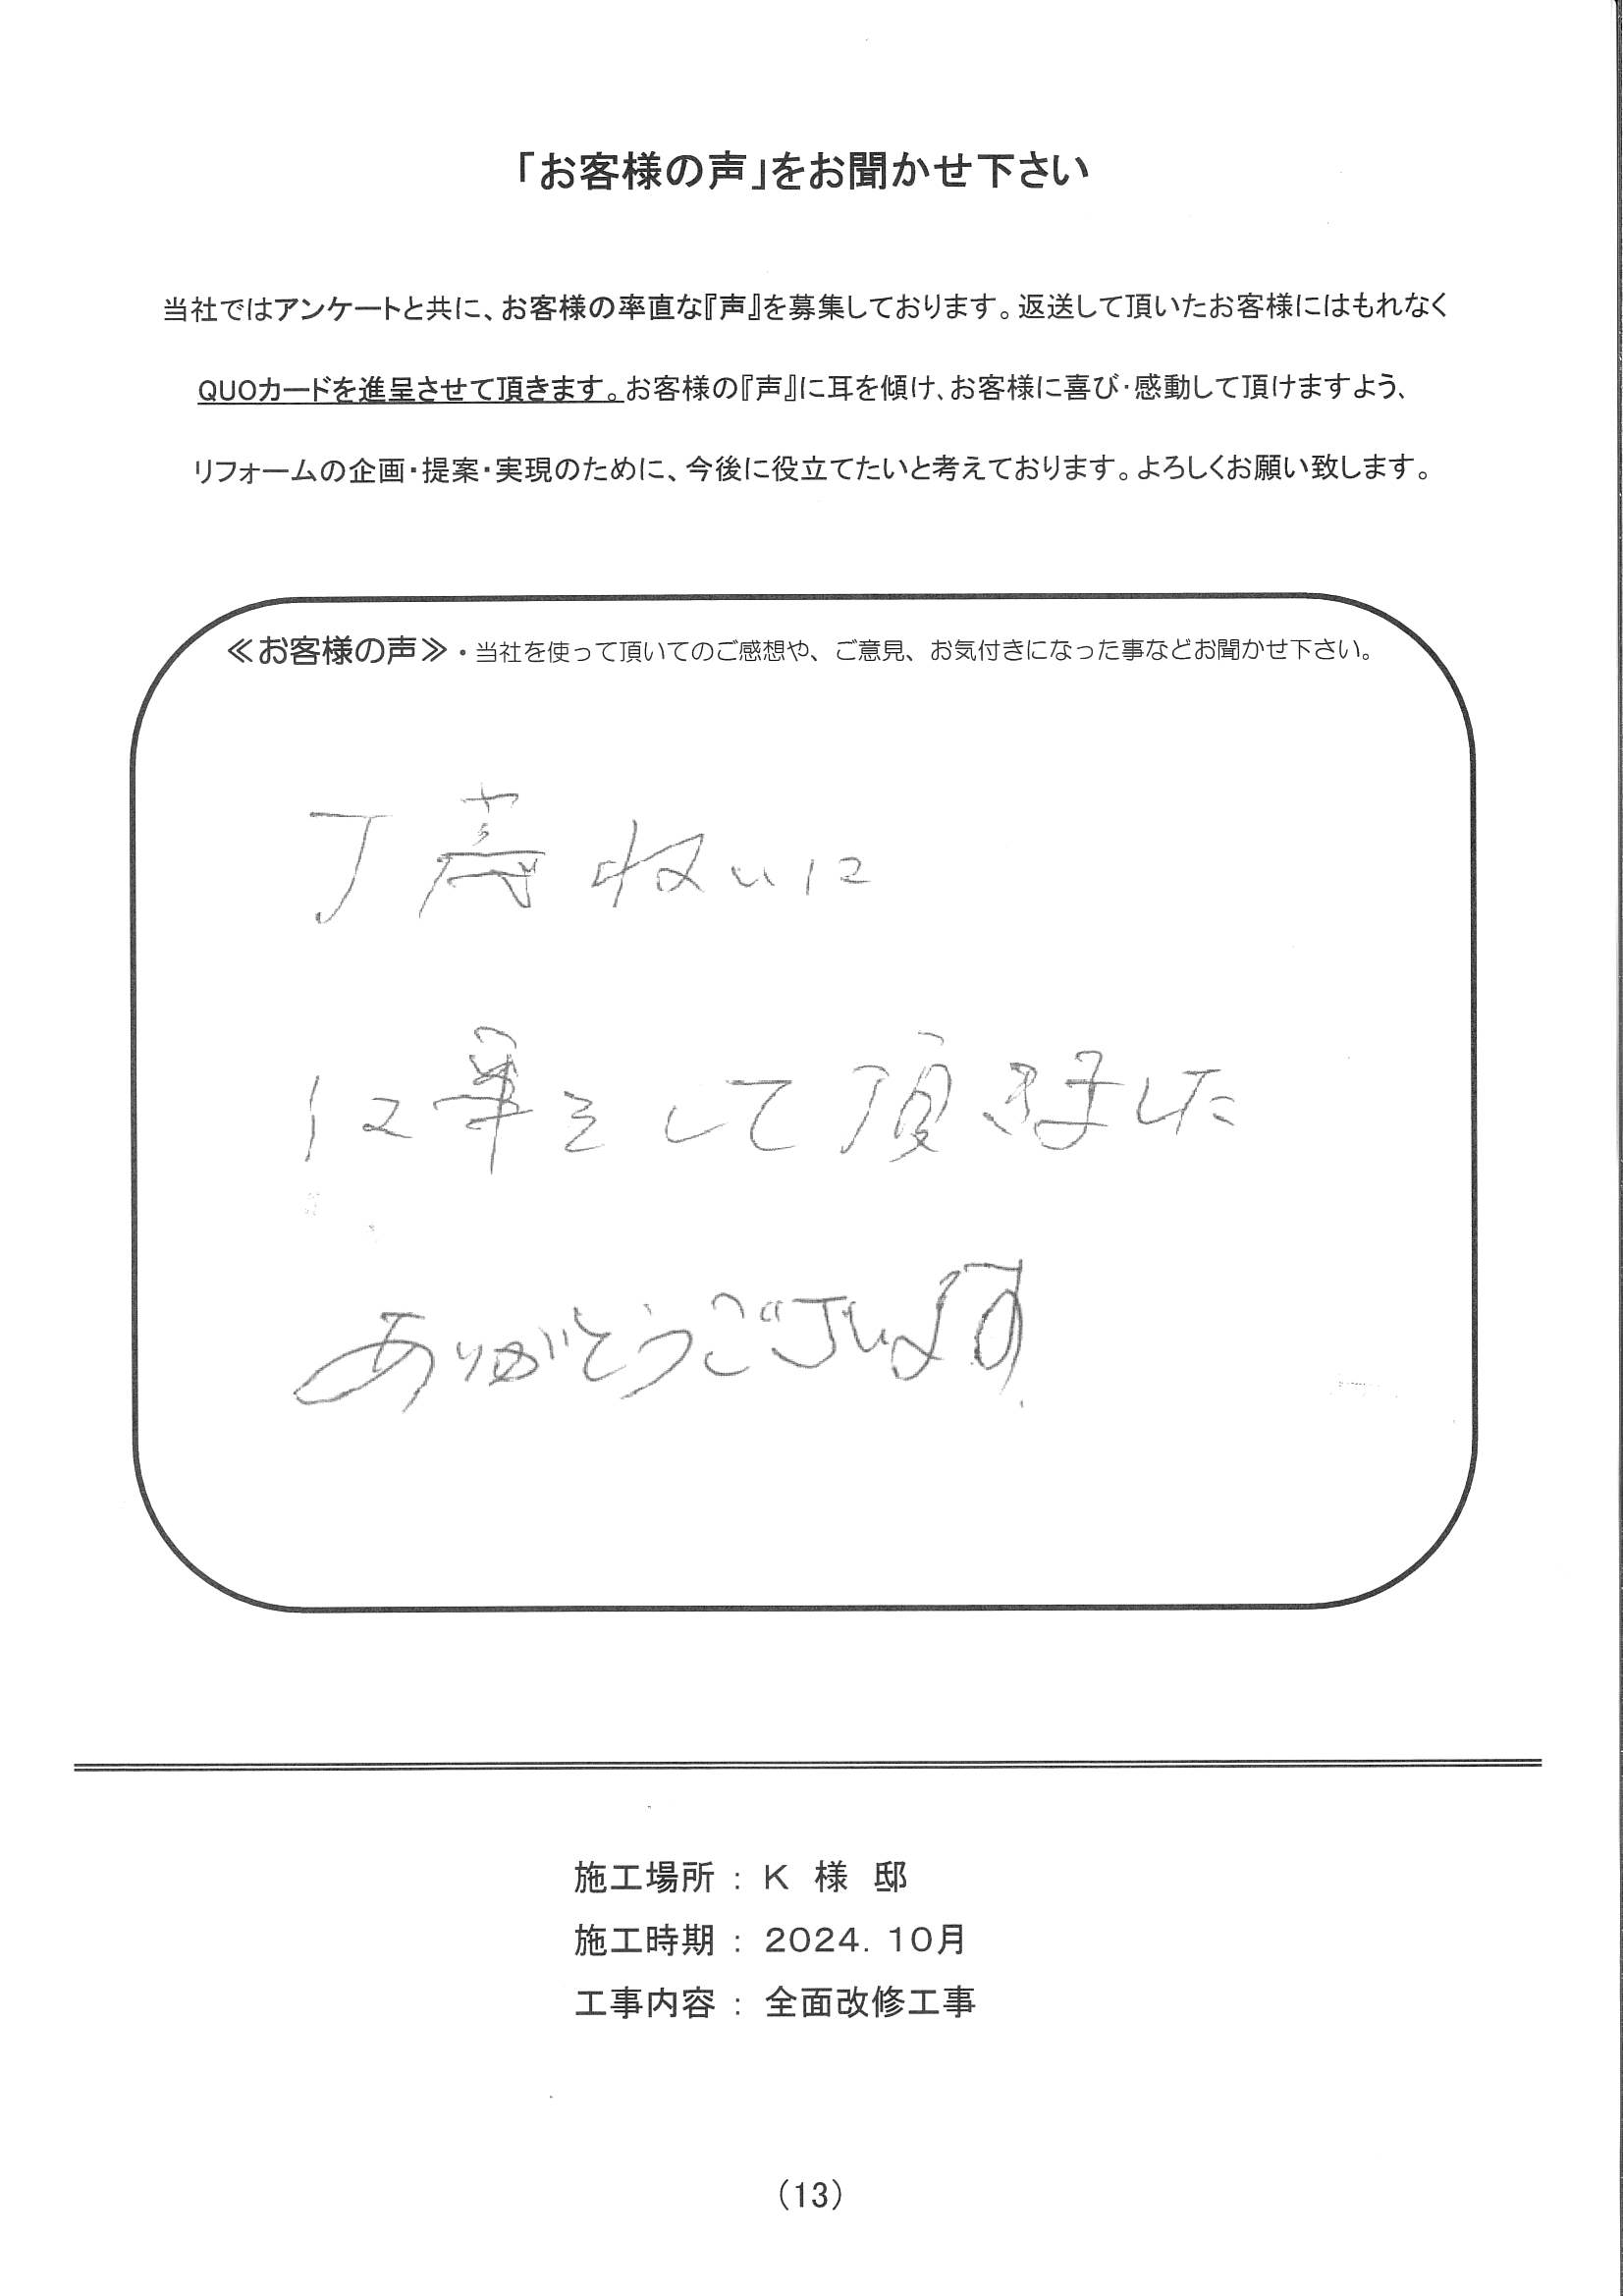 「お客様の声」をお聞かせ下さい
当社ではアンケートと共に、お客様の率直な『声』を募集しております。返送して頂いたお客様にはもれなく
QUOカードを進呈させて頂きます。お客様の『声』に耳を傾け、お客様に喜び・感動して頂けますよう、
リフォームの企画・提案・実現のために、今後に役立てたいと考えております。よろしくお願い致します。
≪お客様の声≫・当社を使って頂いてのご感想や、ご意見、お気付きになった事などお聞かせ下さい。
丁寧
事をして頂きました
ありがとうございます
施工場所 : K 様 邸
施工時期 : 2024. 10月
工事内容 : 全面改修工事
(13)